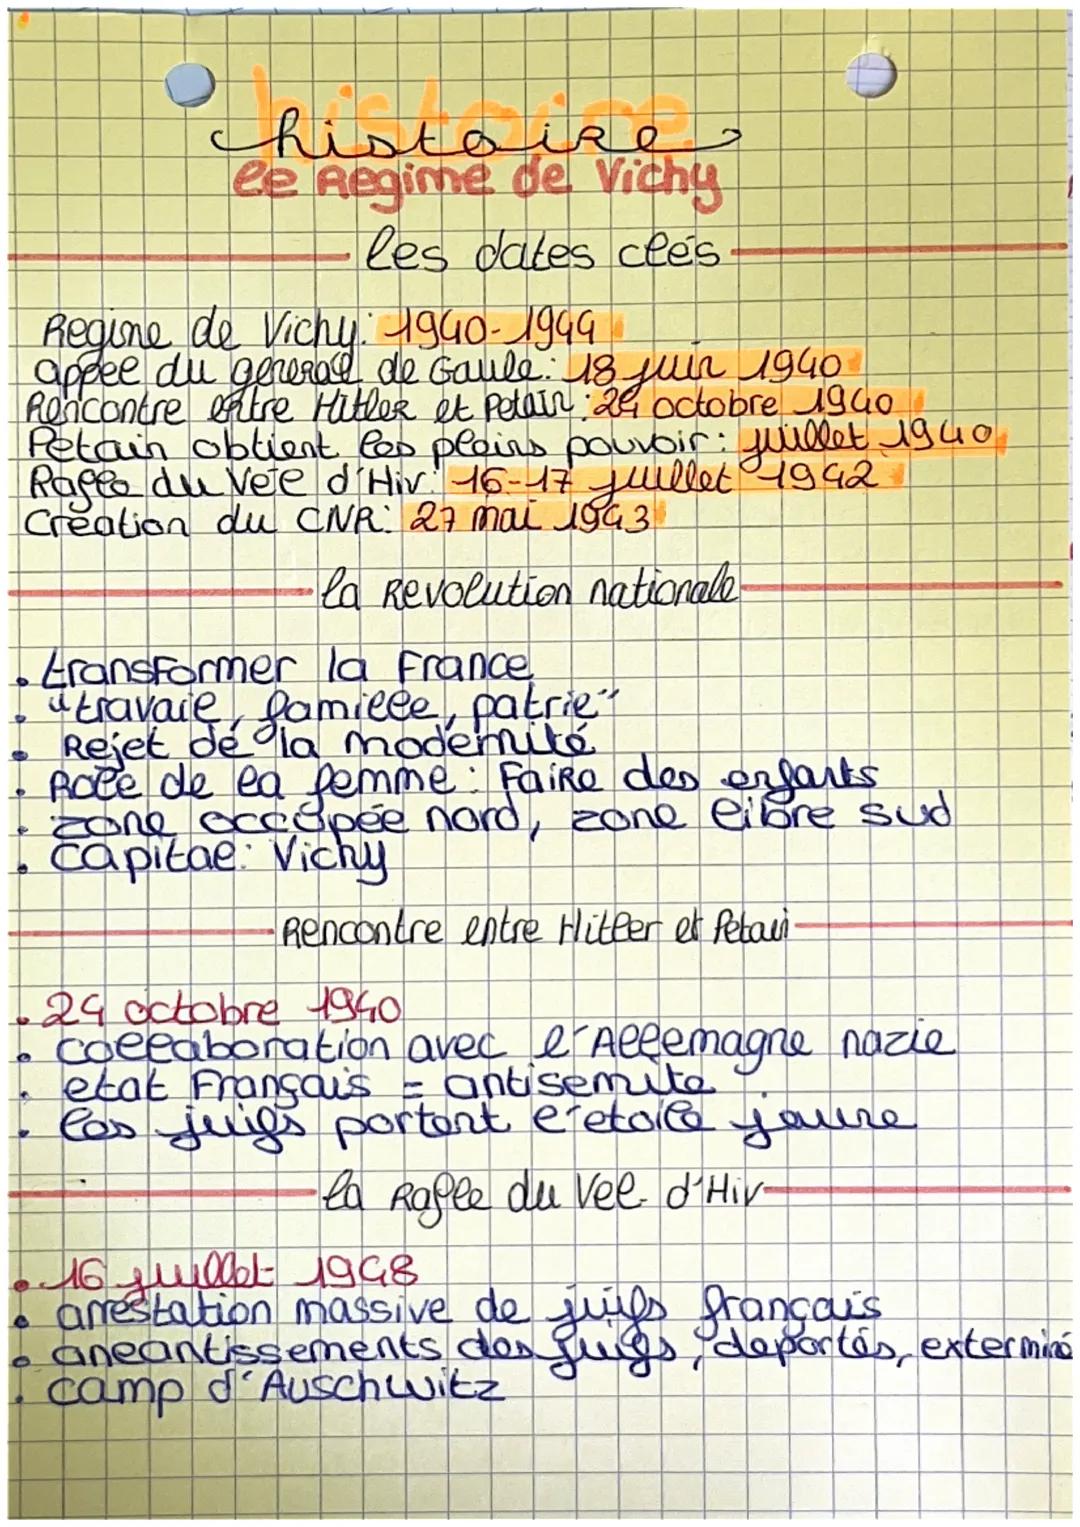 histoire
histoire
le Regime de Vichy
les dates clés
Regine de Vichy: 1940-1944
appel du général de Gaule: 18 juin 1940
Rencontre entre Hitler et Petain: 24 octobre 1940
Petain obtient les pleins pouvoir: juillet 1940
Rafle du Vél d'Hiv: 16-17 juillet 1942
Création du CNR: 27 mai 1943
la Revolution nationale
• transformer la France
• "travail, famille, patrie"
• Rejet de la modernité
• Role de la femme: Faire des enfants
• zone occupée nord, zone libre sud
• capital: Vichy
Rencontre entre Hitler et Petain
• 24 octobre 1940
• collaboration avec l'Allemagne nazie
• etat Français = antisemite
• les juifs portent l'etoile jaune
la Rafle du Vel d'Hiv
• 16 juillet 1948
• arrestation massive de juifs français
• aneantissements des juifs, deportés, exterminé
• camp d'Auschwitz